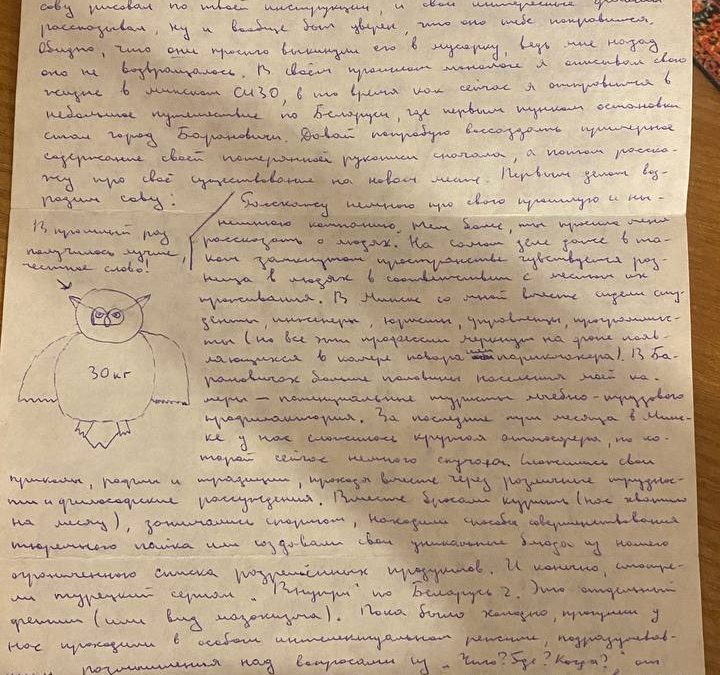 сову рисовал по твоей инструкции, и свои интересные
рассказывал, ну и вообще был уверен, что оно тебе понравится.
Обидно, что они просто выкинули его в мусорку, ведь мне назад
оно не возвращалось. В своём прошлом монологе я описывал свою
жизнь в минском СИЗО, в то время как сейчас я отправился в
небольшое путешествие по Беларуси, где первым пунктом остановки
стал город Барановичи. Давай попробую воссоздать примерное
содержание своей потерянной рукописи сначала, а потом расска-
жу про своё существование на новом месте. Первым делом воз-
родим сову:
В прошлый раз
получилось лучше,
честное слово!
30 кг
Расскажу немного про свою прошлую и ны-
нешнюю компанию. Тем более, ты просила меня
рассказать о людях. На самом деле даже в та-
ком замкнутом пространстве чувствуется раз-
ница в людях в соответствии с местом их
проживания. В Минске со мной вместе сидели сту-
денты, инженеры, юристы, управленцы, программис-
ты (но все эти профессии меркнут на фоне появ-
ляющихся в камере повара или парикмахера). В Ба-
рановичах больше половины населения моей ка-
меры — потенциальные туристы лечебно-трудового
профилактория. За последние три месяца в Минс-
ке у нас сложилась крутая атмосфера, по ко-
торой сейчас немного скучаю. Сложились свои
приколы, радости и традиции, проходя вместе через различные труднос-
ти и философские рассуждения. Вместе бросали курить (нас хватило
на месяц), занимались спортом, находили способы совершенствования
тюремного пайка или создавали свои уникальные блюда из нашего
ограниченного списка разрешённых продуктов. И конечно, смотре-
ли турецкий сериал "Внутри" по Беларусь 2. Это отдельный
фетиш (или вид мазохизма). Пока было холодно, прогулки у
нас проходили в особом интеллектуальном режиме, подразумевав-
размышления над вопросами из "Что? Где? Когда?" от